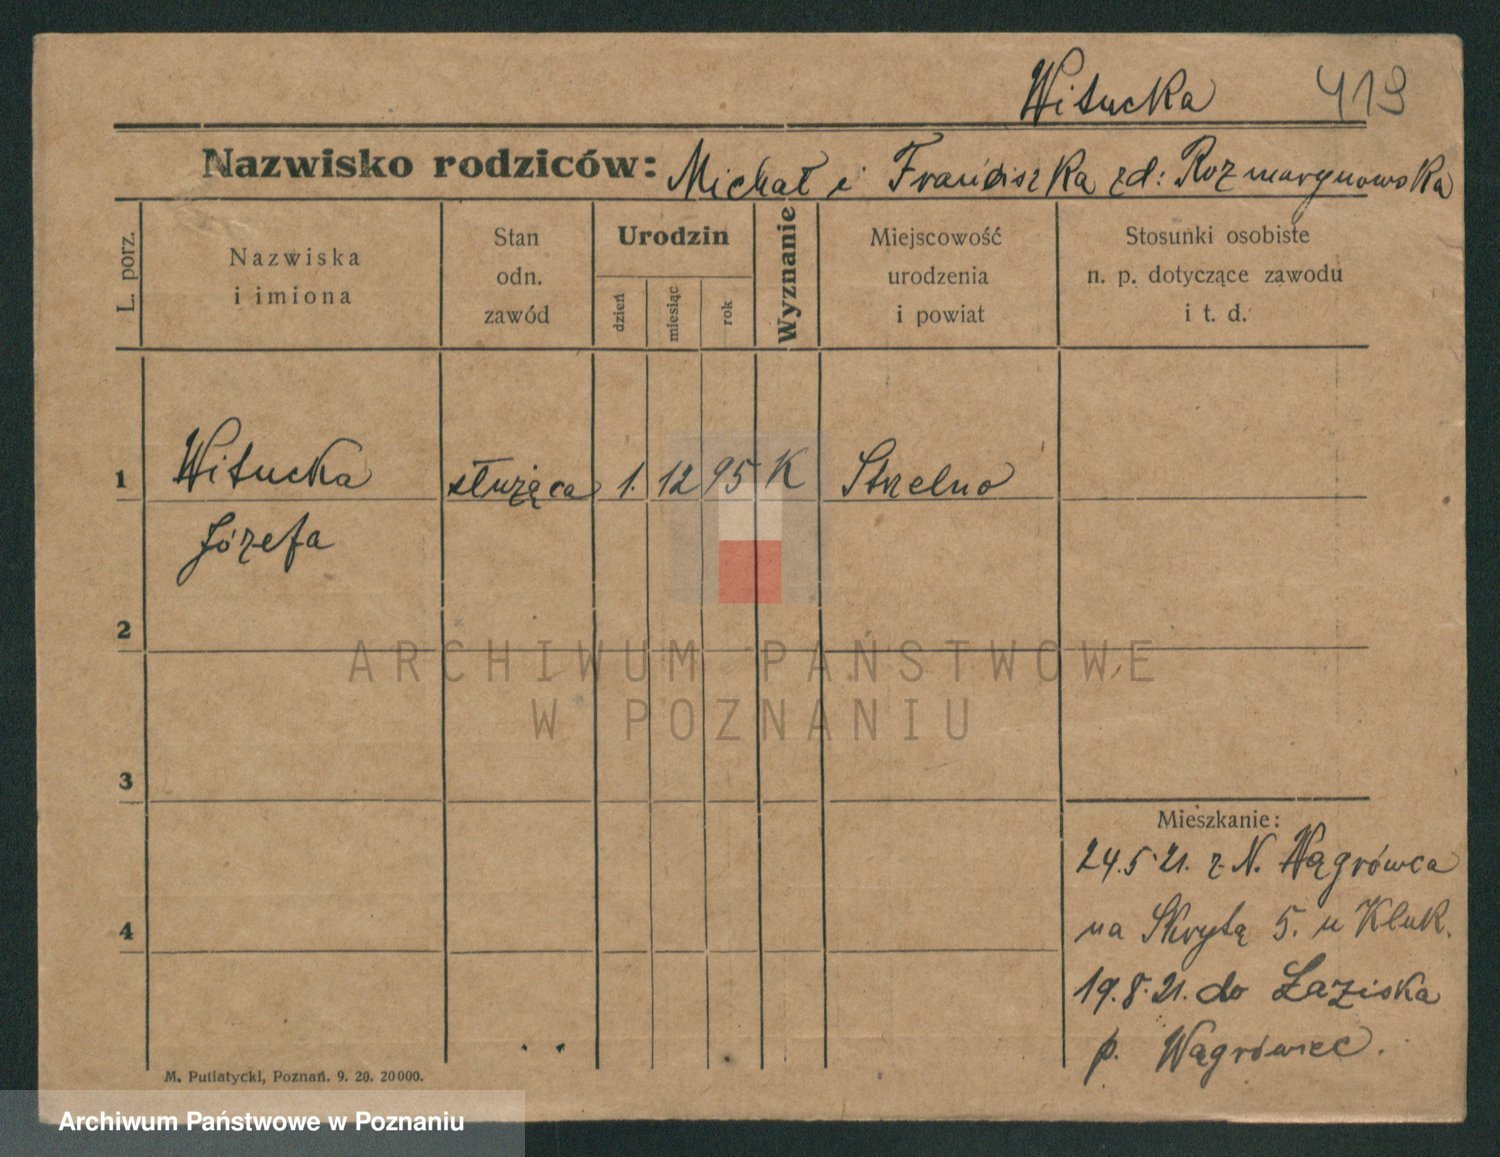 Witucka 419
Nazwisko rodziców: Michał i Franciszka zd: Rozmarynowska
L. porz.
Nazwiska
i imiona
Stan
odn.
zawód
Urodzin
dzień
miesiąc
rok
Wyznanie
Miejscowość
urodzenia
i powiat
Stosunki osobiste
n. p. dotyczące zawodu
i t. d.
1 Witucka służąca 1. 12 95 K Strzelno
Józefa
2
3
4
Mieszkanie:
24.5.21. z N. Wągrówca
na Skrytą 5. u Kluk.
19.8.21. do Łaziska
p. Wągrówiec.
M. Putiatycki, Poznań. 9. 20. 20000.
ARCHIWUM PAŃSTWOWE
W POZNANIU
Archiwum Państwowe w Poznaniu